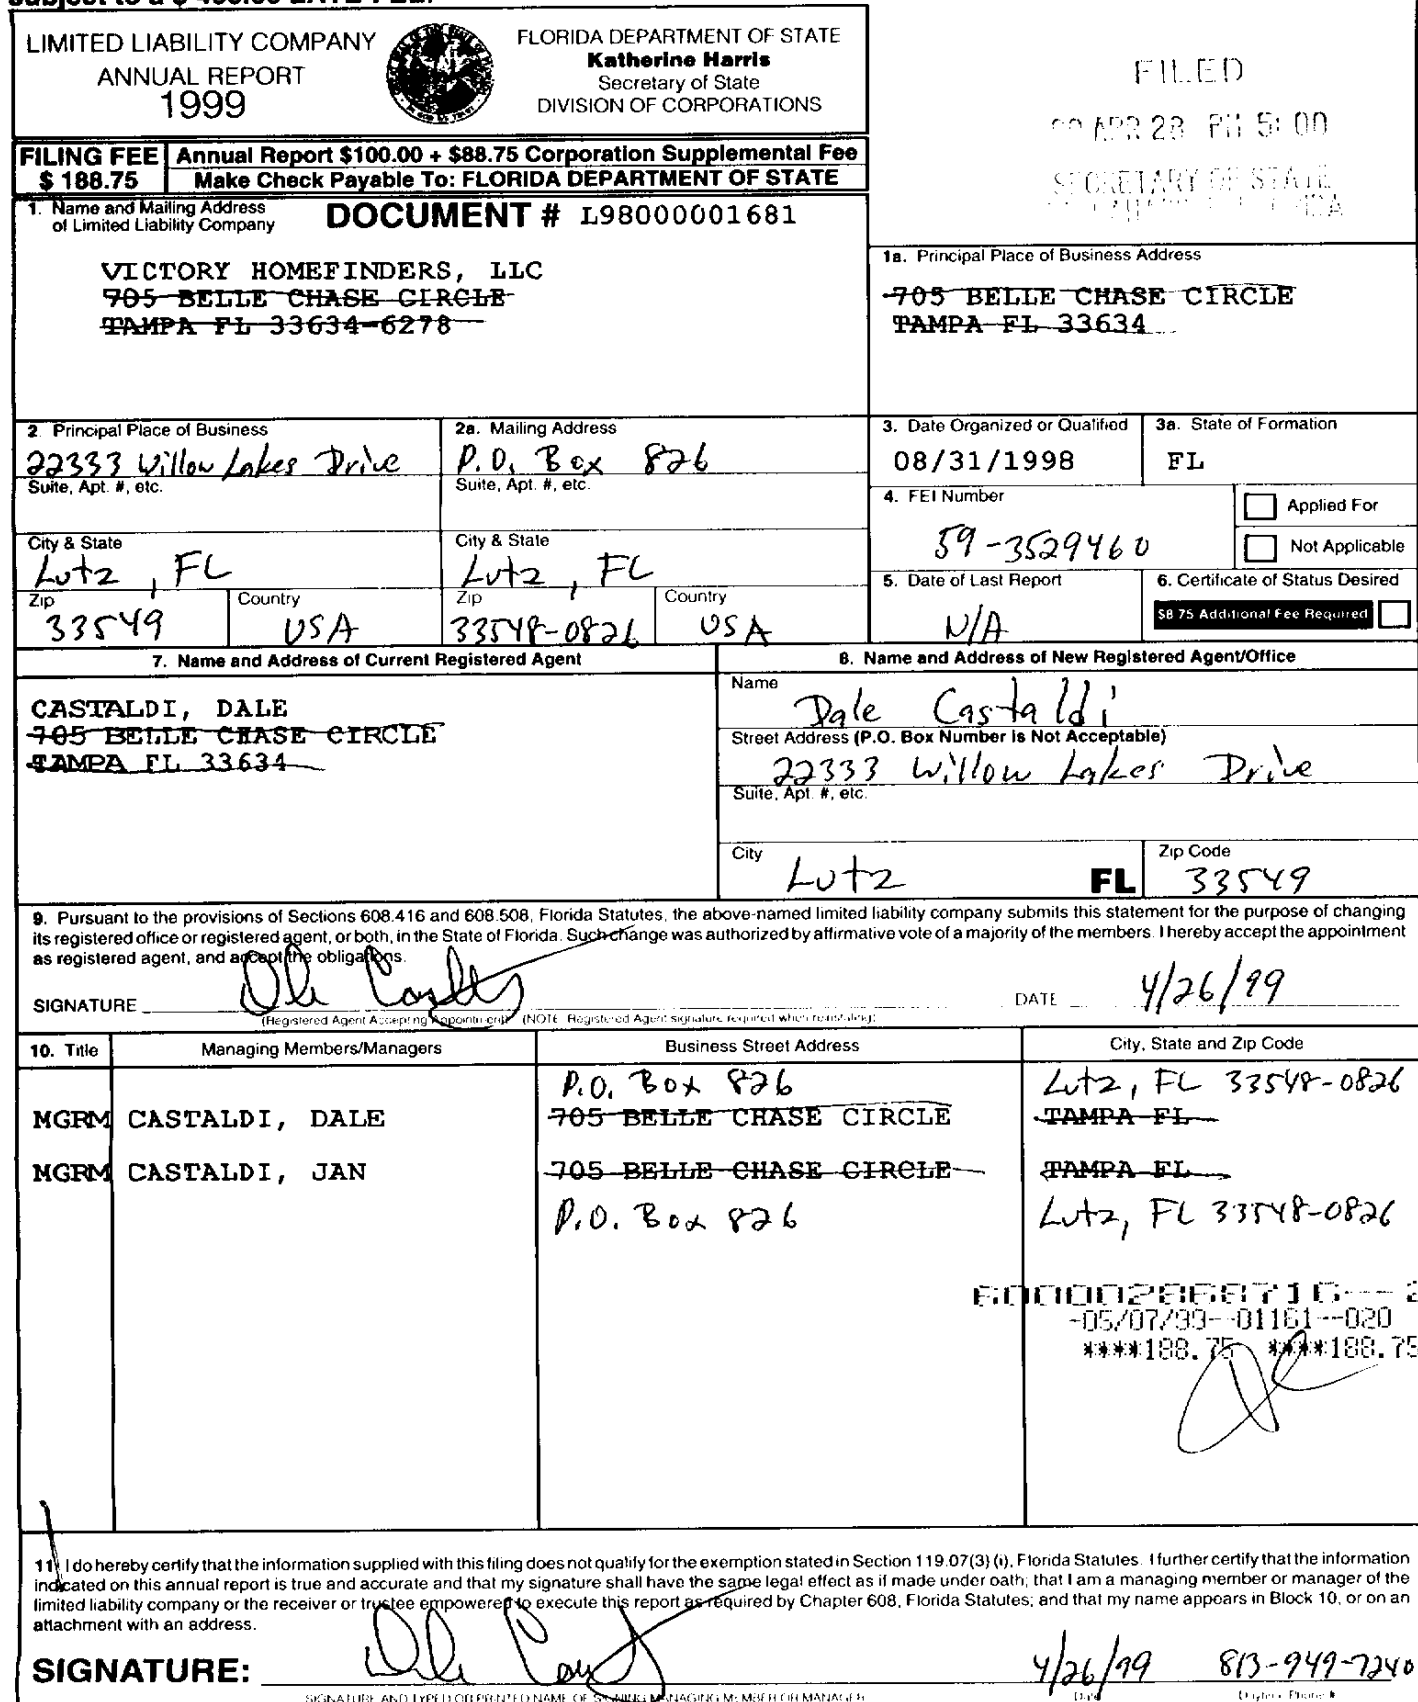 LIMITED LIABILITY COMPANY
ANNUAL REPORT
1999
FLORIDA DEPARTMENT OF STATE
Katherine Harris
Secretary of State
DIVISION OF CORPORATIONS
FILED
APR 28 PM 5:00
SECRETARY OF STATE
FILING FEE
$ 188.75
Annual Report $100.00 + $88.75 Corporation Supplemental Fee
Make Check Payable To: FLORIDA DEPARTMENT OF STATE
1. Name and Mailing Address
of Limited Liability Company
DOCUMENT # L98000001681
VICTORY HOMEFINDERS, LLC
705 BELLE CHASE CIRCLE
TAMPA FL 33634-6278
1a. Principal Place of Business Address
705 BELLE CHASE CIRCLE
TAMPA FL 33634
2. Principal Place of Business
22333 Willow Lakes Drive
Suite, Apt. #, etc.
City & State
Lutz, FL
Zip
33549
Country
USA
2a. Mailing Address
P.O. Box 826
Suite, Apt. #, etc.
City & State
Lutz, FL
Zip
33548-0826
Country
USA
3. Date Organized or Qualified
08/31/1998
3a. State of Formation
FL
4. FEI Number
59-3529460
Applied For
Not Applicable
5. Date of Last Report
N/A
6. Certificate of Status Desired
$8.75 Additional Fee Required
7. Name and Address of Current Registered Agent
CASTALDI, DALE
705 BELLE CHASE CIRCLE
TAMPA FL 33634
8. Name and Address of New Registered Agent/Office
Name
Dale Castaldi
Street Address (P.O. Box Number is Not Acceptable)
22333 Willow Lakes Drive
Suite, Apt. #, etc.
City
Lutz FL
Zip Code
33549
9. Pursuant to the provisions of Sections 608.416 and 608.508, Florida Statutes, the above-named limited liability company submits this statement for the purpose of changing
its registered office or registered agent, or both, in the State of Florida. Such change was authorized by affirmative vote of a majority of the members. I hereby accept the appointment
as registered agent, and accept the obligations.
SIGNATURE
DATE 4/26/99
(Registered Agent Accepting Appointment) (NOTE: Registered Agent signature required when reinstating)
10. Title Managing Members/Managers Business Street Address City, State and Zip Code
P.O. Box 826 Lutz, FL 33548-0826
MGRM CASTALDI, DALE 705 BELLE CHASE CIRCLE TAMPA FL
MGRM CASTALDI, JAN 705 BELLE CHASE CIRCLE TAMPA FL
P.O. Box 826 Lutz, FL 33548-0826
-05/07/99--01161--020
****188.75 ****188.75
11. I do hereby certify that the information supplied with this filing does not qualify for the exemption stated in Section 119.07(3) (i), Florida Statutes. I further certify that the information
indicated on this annual report is true and accurate and that my signature shall have the same legal effect as if made under oath; that I am a managing member or manager of the
limited liability company or the receiver or trustee empowered to execute this report as required by Chapter 608, Florida Statutes; and that my name appears in Block 10, or on an
attachment with an address.
SIGNATURE:
4/26/99 813-949-7240
SIGNATURE AND TYPED OR PRINTED NAME OF SIGNING MANAGING MEMBER OR MANAGER
Date
Daytime Phone #